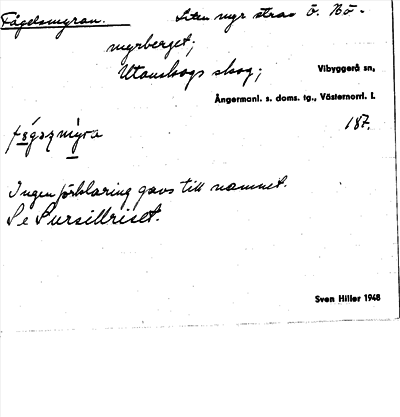 Fågelsmyran. Liten myr strax ö. Rö-
myrberget;
Utanskogs skog; Vibyggerå sn,
Ångermanl. s. doms. tg., Västernorrl. l.
187.
Ingen förklaring gavs till namnet.
Se Sursillriset.
Sven Hiller 1948